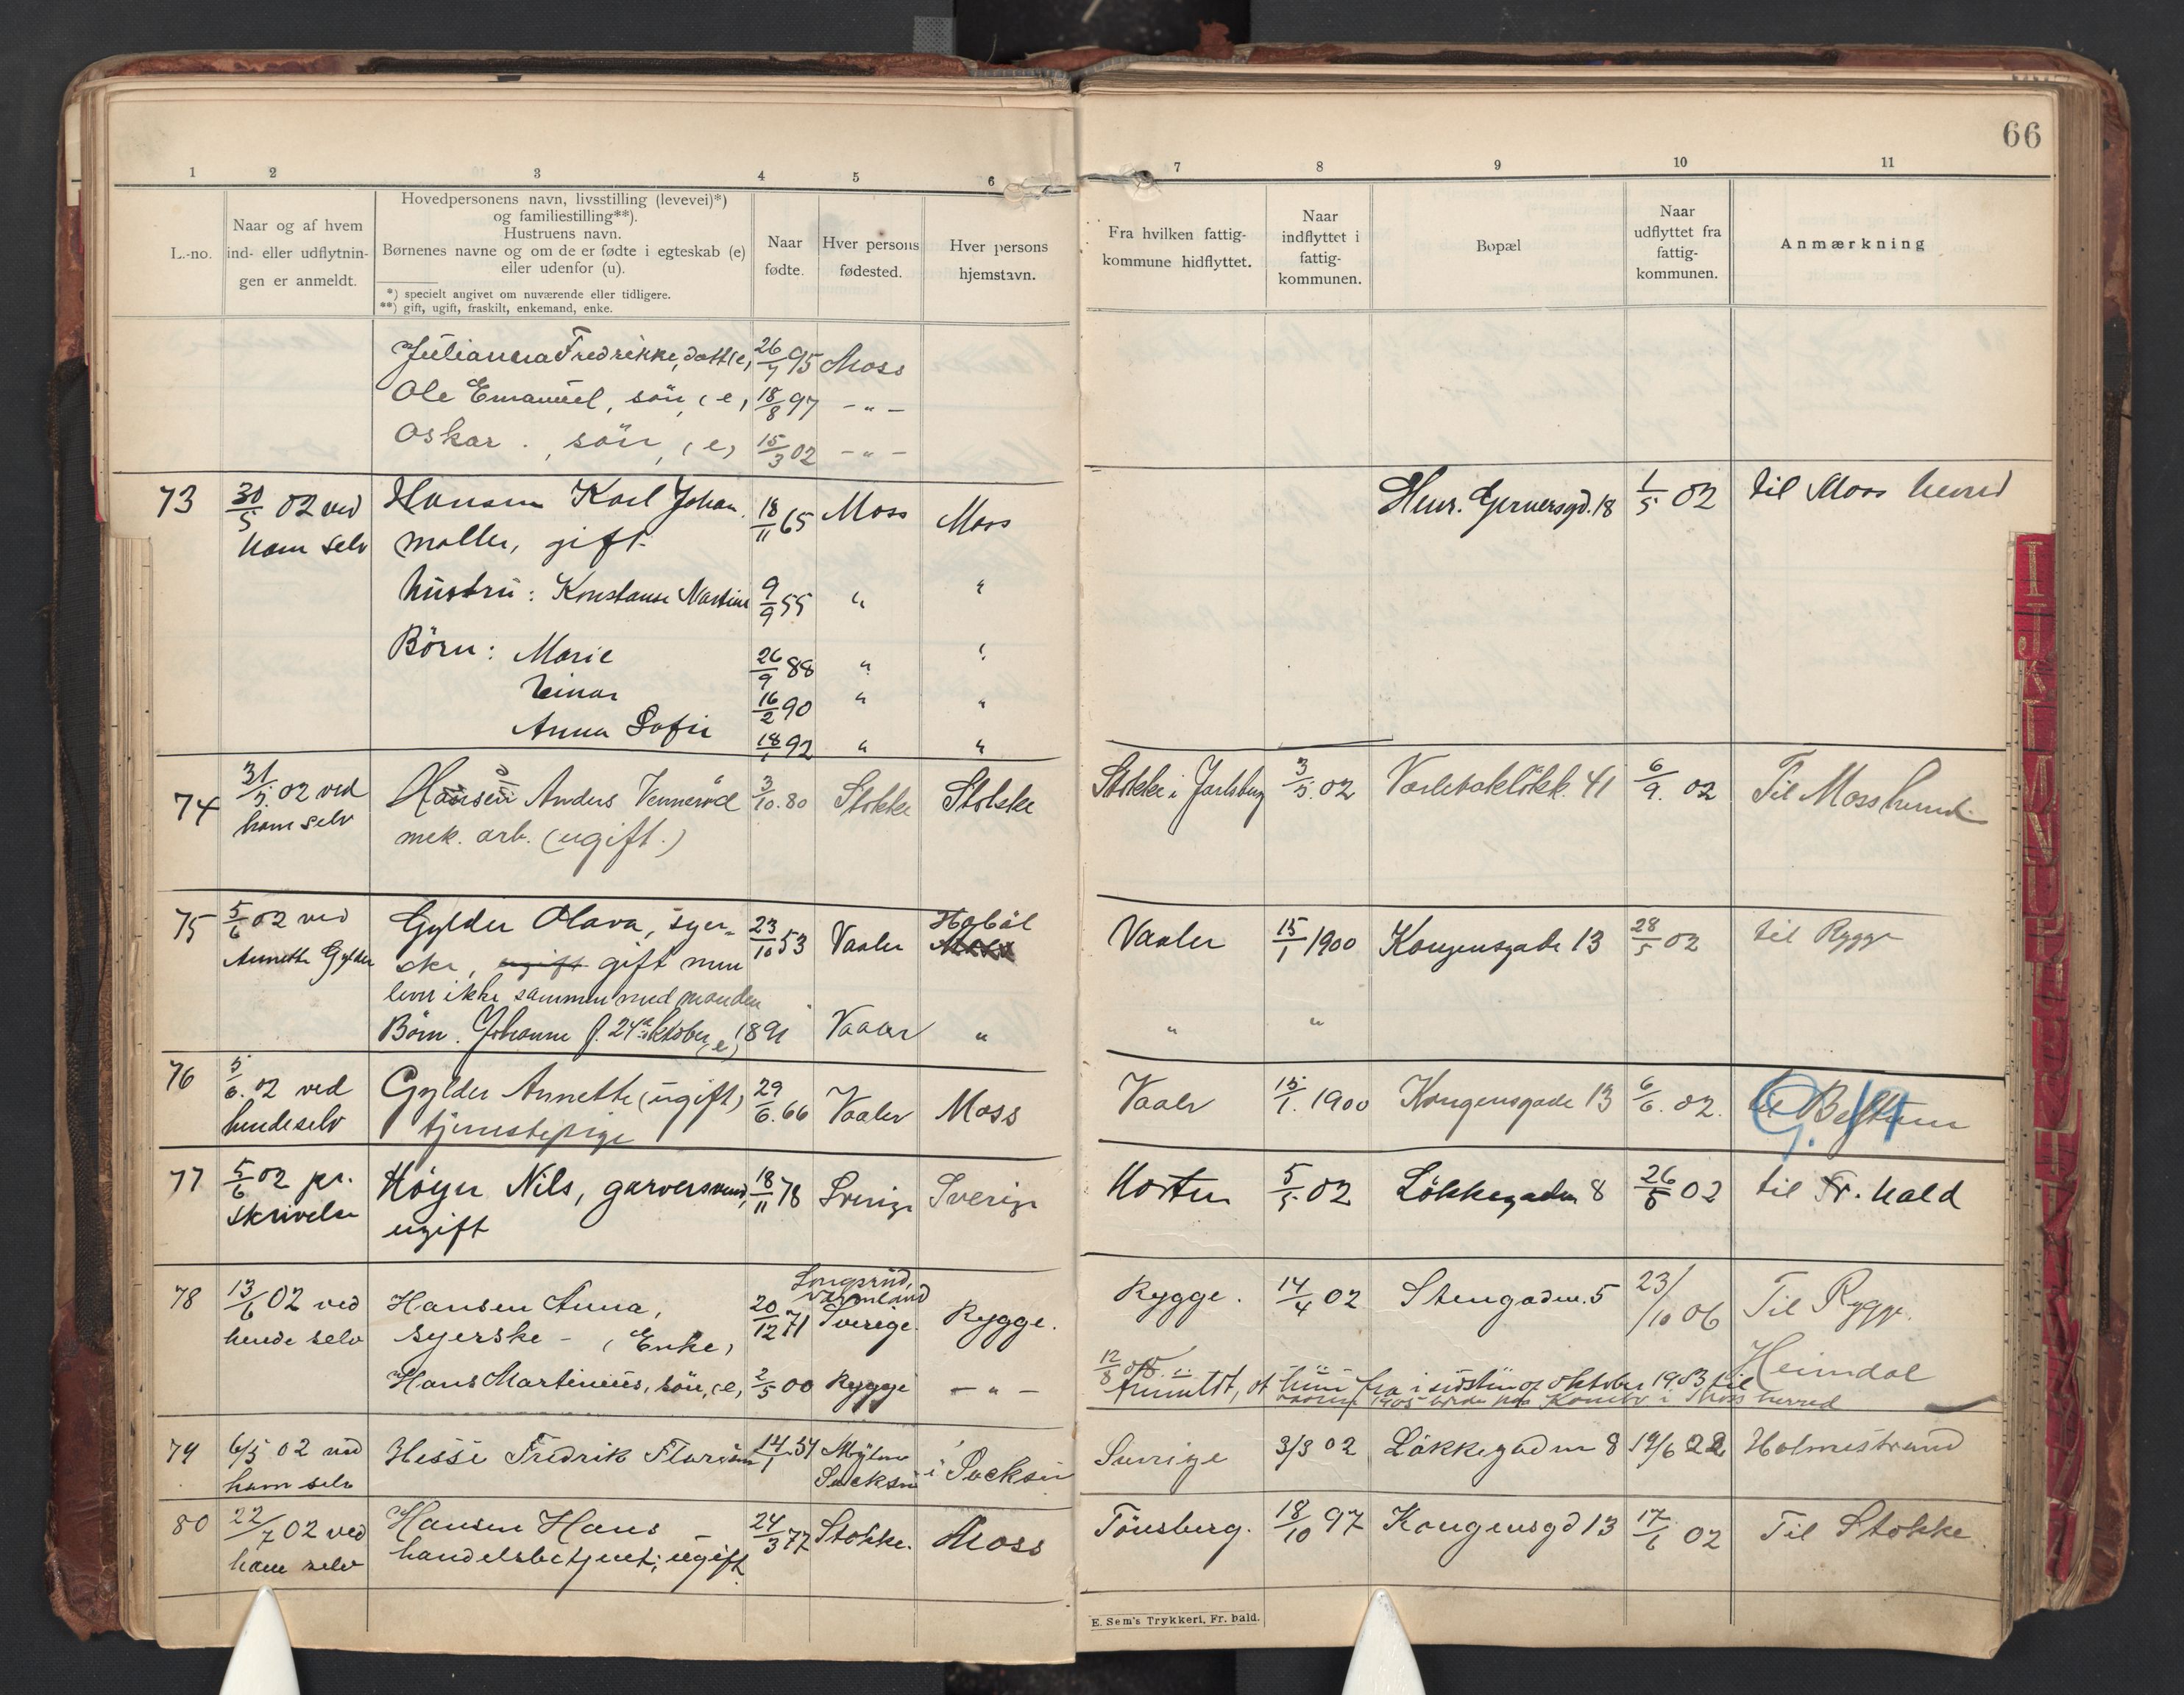 66
1 2 3 4 5 6 7 8 9 10 11
L.-no.
Naar og af hvem
ind- eller udflytnin-
gen er anmeldt.
Hovedpersonens navn, livsstilling (levevei)*)
og familiestilling**).
Hustruens navn.
Børnenes navne og om de er fødte i egteskab (e)
eller udenfor (u).
*) specielt angivet om nuværende eller tidligere.
**) gift, ugift, fraskilt, enkemand, enke.
Naar
fødte.
Hver persons
fødested.
Hver persons
hjemstavn.
Fra hvilken fattig-
kommune hidflyttet.
Naar
indflyttet i
fattig-
kommunen.
Bopæl
Naar
udflyttet fra
fattig-
kommunen.
Anmærkning
Julianna Fredrikke, datt (e) 95 Moss
Ole Emanuel, sön, (e) 18/8 97 - " -
Oskar, sön, (e) 15/3 02 - " -
73 30/5 02 ved Hansen Karl Johan 18/11 65 Moss Moss Henr. Gernersgd. 18 1/5 02 til Moss herred
ham selv maller, gift
hustru: Konstanse 9/9 55 " "
Börn: Marie 26/9 88 " "
Einar 16/2 90 " "
Anna Sofie 18/1 92 " "
74 31/5. 02 ved Hansen Anders Vennerød 3/10. 80 Stokke Stokke Stokke i Jarlsberg 3/5. 02 Varlebaklökk. 41 6/9. 02 Til Moss herred
ham selv mek. arb. (ugift.)
75 5/6 02 ved Gylder Olava, syer- 23/10 53 Vaaler Hobøl Vaaler 15/1 1900 Kongensgade 13 28/5 02 til Rygge
Annette Gylder ske, ugift gift men
lever ikke sammen med manden
Börn. Johanne f. 24de oktober (e) 1891 Vaaler " " "
76 5/6. 02 ved Gylder Annette (ugift) 29/6. 66 Vaaler Moss Vaaler 15/1. 1900 Kongensgade 13 6/6. 02. til
hende selv tjenestepige
77 5/6 02 pr. Höyer Nils, garversvend, 18/11 78 Sverige Sverige Horten 5/5 02 Løkkegaden 8 26/5 02 til Fr. hald
skrivelse ugift
78 13/6 02 ved Hansen Anna, 20/12 71 Vermland Sverige Rygge. Rygge. 14/4 02 Stengaden. 5 23/10 06 Til Rygge.
hende selv syerske - (Enke)
Heimdal
Hans Martinius, sön, (e) 2/5 00 Rygge - " -
Anmeldt, at hun fra i sidsten af oktober til
1905 i Moss herred
79 6/5 02 ved Hesse Fredrik Florian 14/1 54 Sachsen i Sachsen Sverige 3/3 02 Løkkegaden 8 19/6 22 Holmestrand
ham selv
80 22/7 02 ved Hansen Hans - 24/3 77 Stokke. Moss Tönsberg. 18/10 97 Kongensgd 13 17/6 02 Til Stokke.
ham selv handelsbetjent; ugift.
E. Sem's Trykkeri, Fr. hald.
I
J
K
L
M
N
O
P